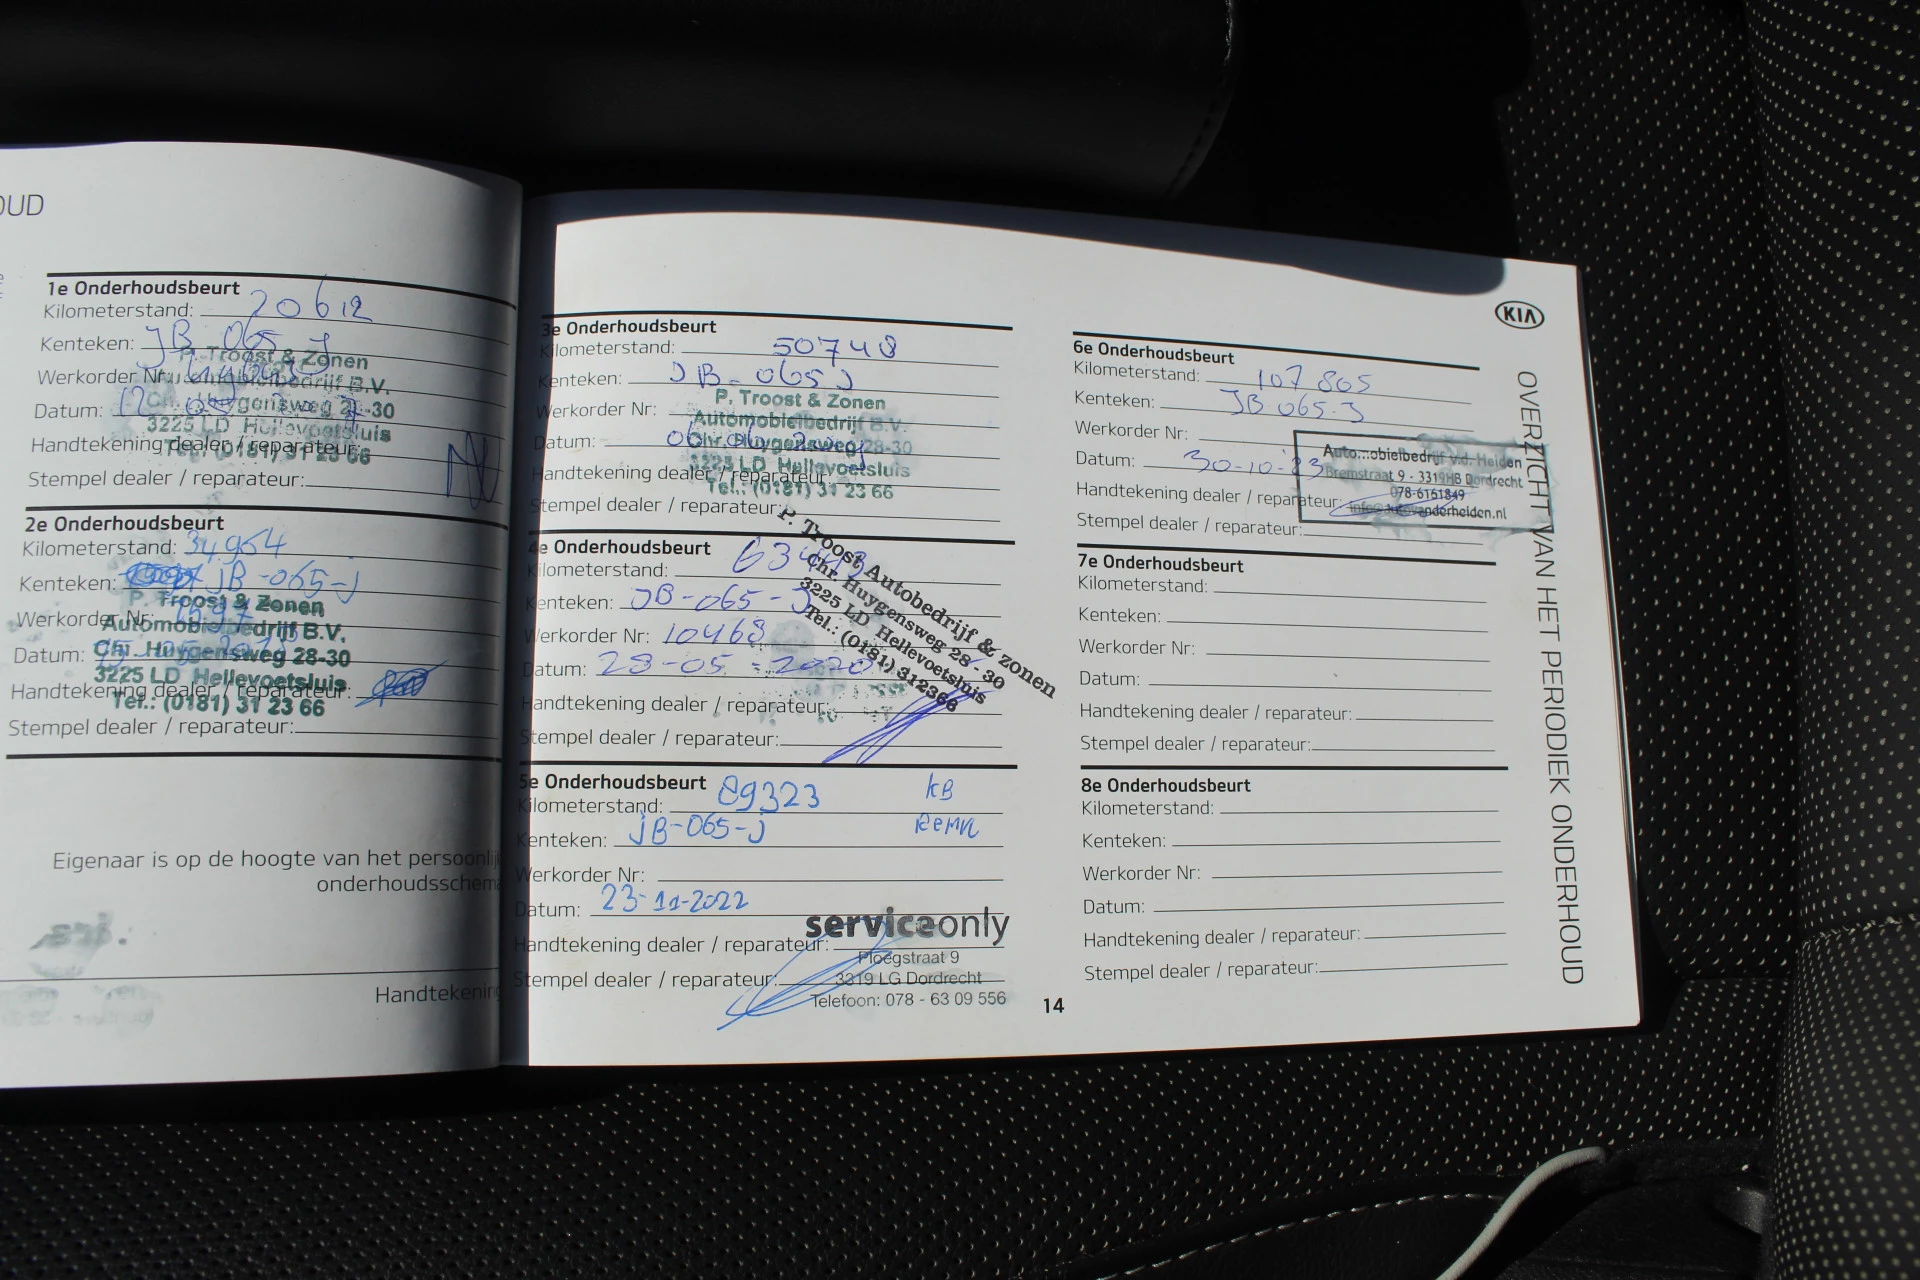 OUD
1e Onderhoudsbeurt
Kilometerstand: 20612
Kenteken: JB 065 J
P. Troost & Zonen
Werkorder Nr.:
Automobielbedrijf B.V.
Datum: 12
Chr. Huygensweg 28-30
3225 LD Hellevoetsluis
Handtekening dealer / reparateur:
Tel.: (0181) 31 23 66
Stempel dealer / reparateur:
2e Onderhoudsbeurt
Kilometerstand: 34964
Kenteken: JB-065-J
P. Troost & Zonen
Werkorder Nr:
Automobielbedrijf B.V.
Datum:
Chr. Huygensweg 28-30
3225 LD Hellevoetsluis
Handtekening dealer / reparateur:
Tel.: (0181) 31 23 66
Stempel dealer / reparateur:
Eigenaar is op de hoogte van het persoonlij
onderhoudsschema
Handtekening
3e Onderhoudsbeurt
Kilometerstand: 50748
Kenteken: JB-065J
P. Troost & Zonen
Werkorder Nr:
Automobielbedrijf B.V.
Datum:
Chr. Huygensweg 28-30
3225 LD Hellevoetsluis
Handtekening dealer / reparateur:
Tel.: (0181) 31 23 66
Stempel dealer / reparateur:
4e Onderhoudsbeurt
Kilometerstand:
Kenteken: JB-065-J
Werkorder Nr: 10468
Datum: 28-05-2020
Handtekening dealer / reparateur:
Stempel dealer / reparateur:
P. Troost Autobedrijf & zonen
Chr. Huygensweg 28 - 30
3225 LD Hellevoetsluis
Tel.: (0181) 312366
5e Onderhoudsbeurt
Kilometerstand: 89323 KB
Kenteken: jB-065-j
Werkorder Nr:
Datum: 23-11-2022
Handtekening dealer / reparateur:
Stempel dealer / reparateur:
serviceonly
Ploegstraat 9
3319 LG Dordrecht
Telefoon: 078 - 63 09 556
14
KIA
6e Onderhoudsbeurt
Kilometerstand: 107805
Kenteken: JB 065-J
Werkorder Nr:
Datum: 30-10-23
Handtekening dealer / reparateur:
Stempel dealer / reparateur:
Auto...obielbedrijf v.d. Heiden
Bremstraat 9 - 3319HB Dordrecht
078-6161849
info@autovanderheiden.nl
7e Onderhoudsbeurt
Kilometerstand:
Kenteken:
Werkorder Nr:
Datum:
Handtekening dealer / reparateur:
Stempel dealer / reparateur:
8e Onderhoudsbeurt
Kilometerstand:
Kenteken:
Werkorder Nr:
Datum:
Handtekening dealer / reparateur:
Stempel dealer / reparateur:
OVERZICHT VAN HET PERIODIEK ONDERHOUD